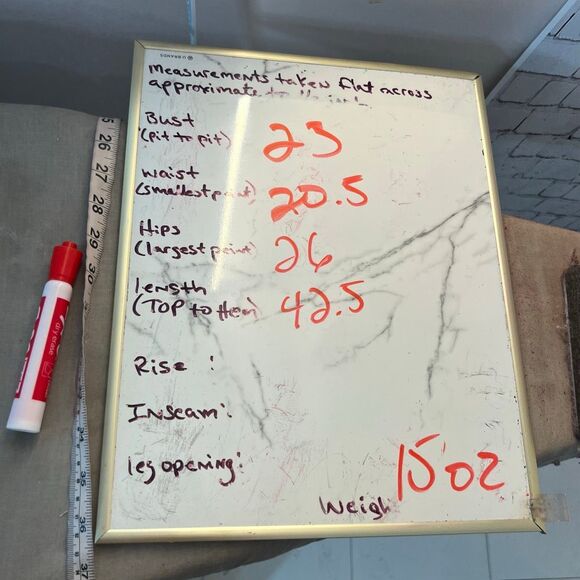 U BRANDS
Measurements taken flat across
approximate to
Bust
(pit to pit) 23
Waist
(smallest point) 20.5
Hips
(largest point) 26
length
(TOP to Hem) 42.5
Rise :
Inseam:
leg opening:
Weigh 15 oz
26
27
28
29
30
34
35
36
37
dry erase